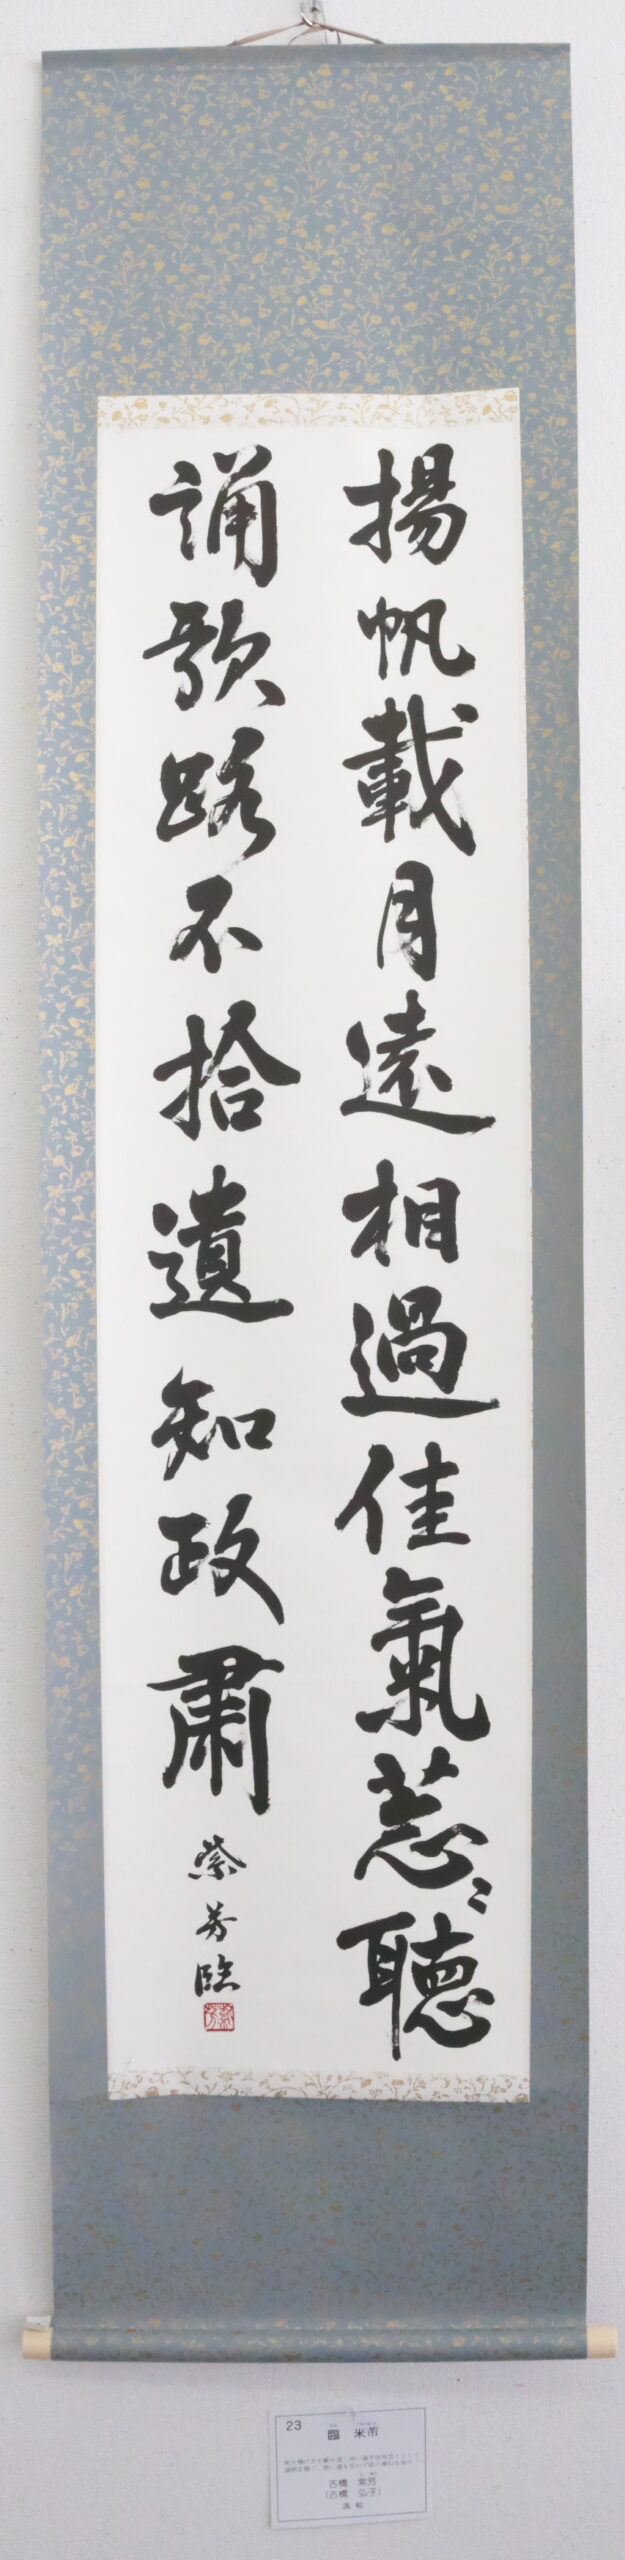 揚帆載月遠相過佳氣葱〻聽
誦歌路不拾遺知政肅
紫芳臨
23
臨 米芾
古橋 紫芳
（古橋 弘子）
浜松